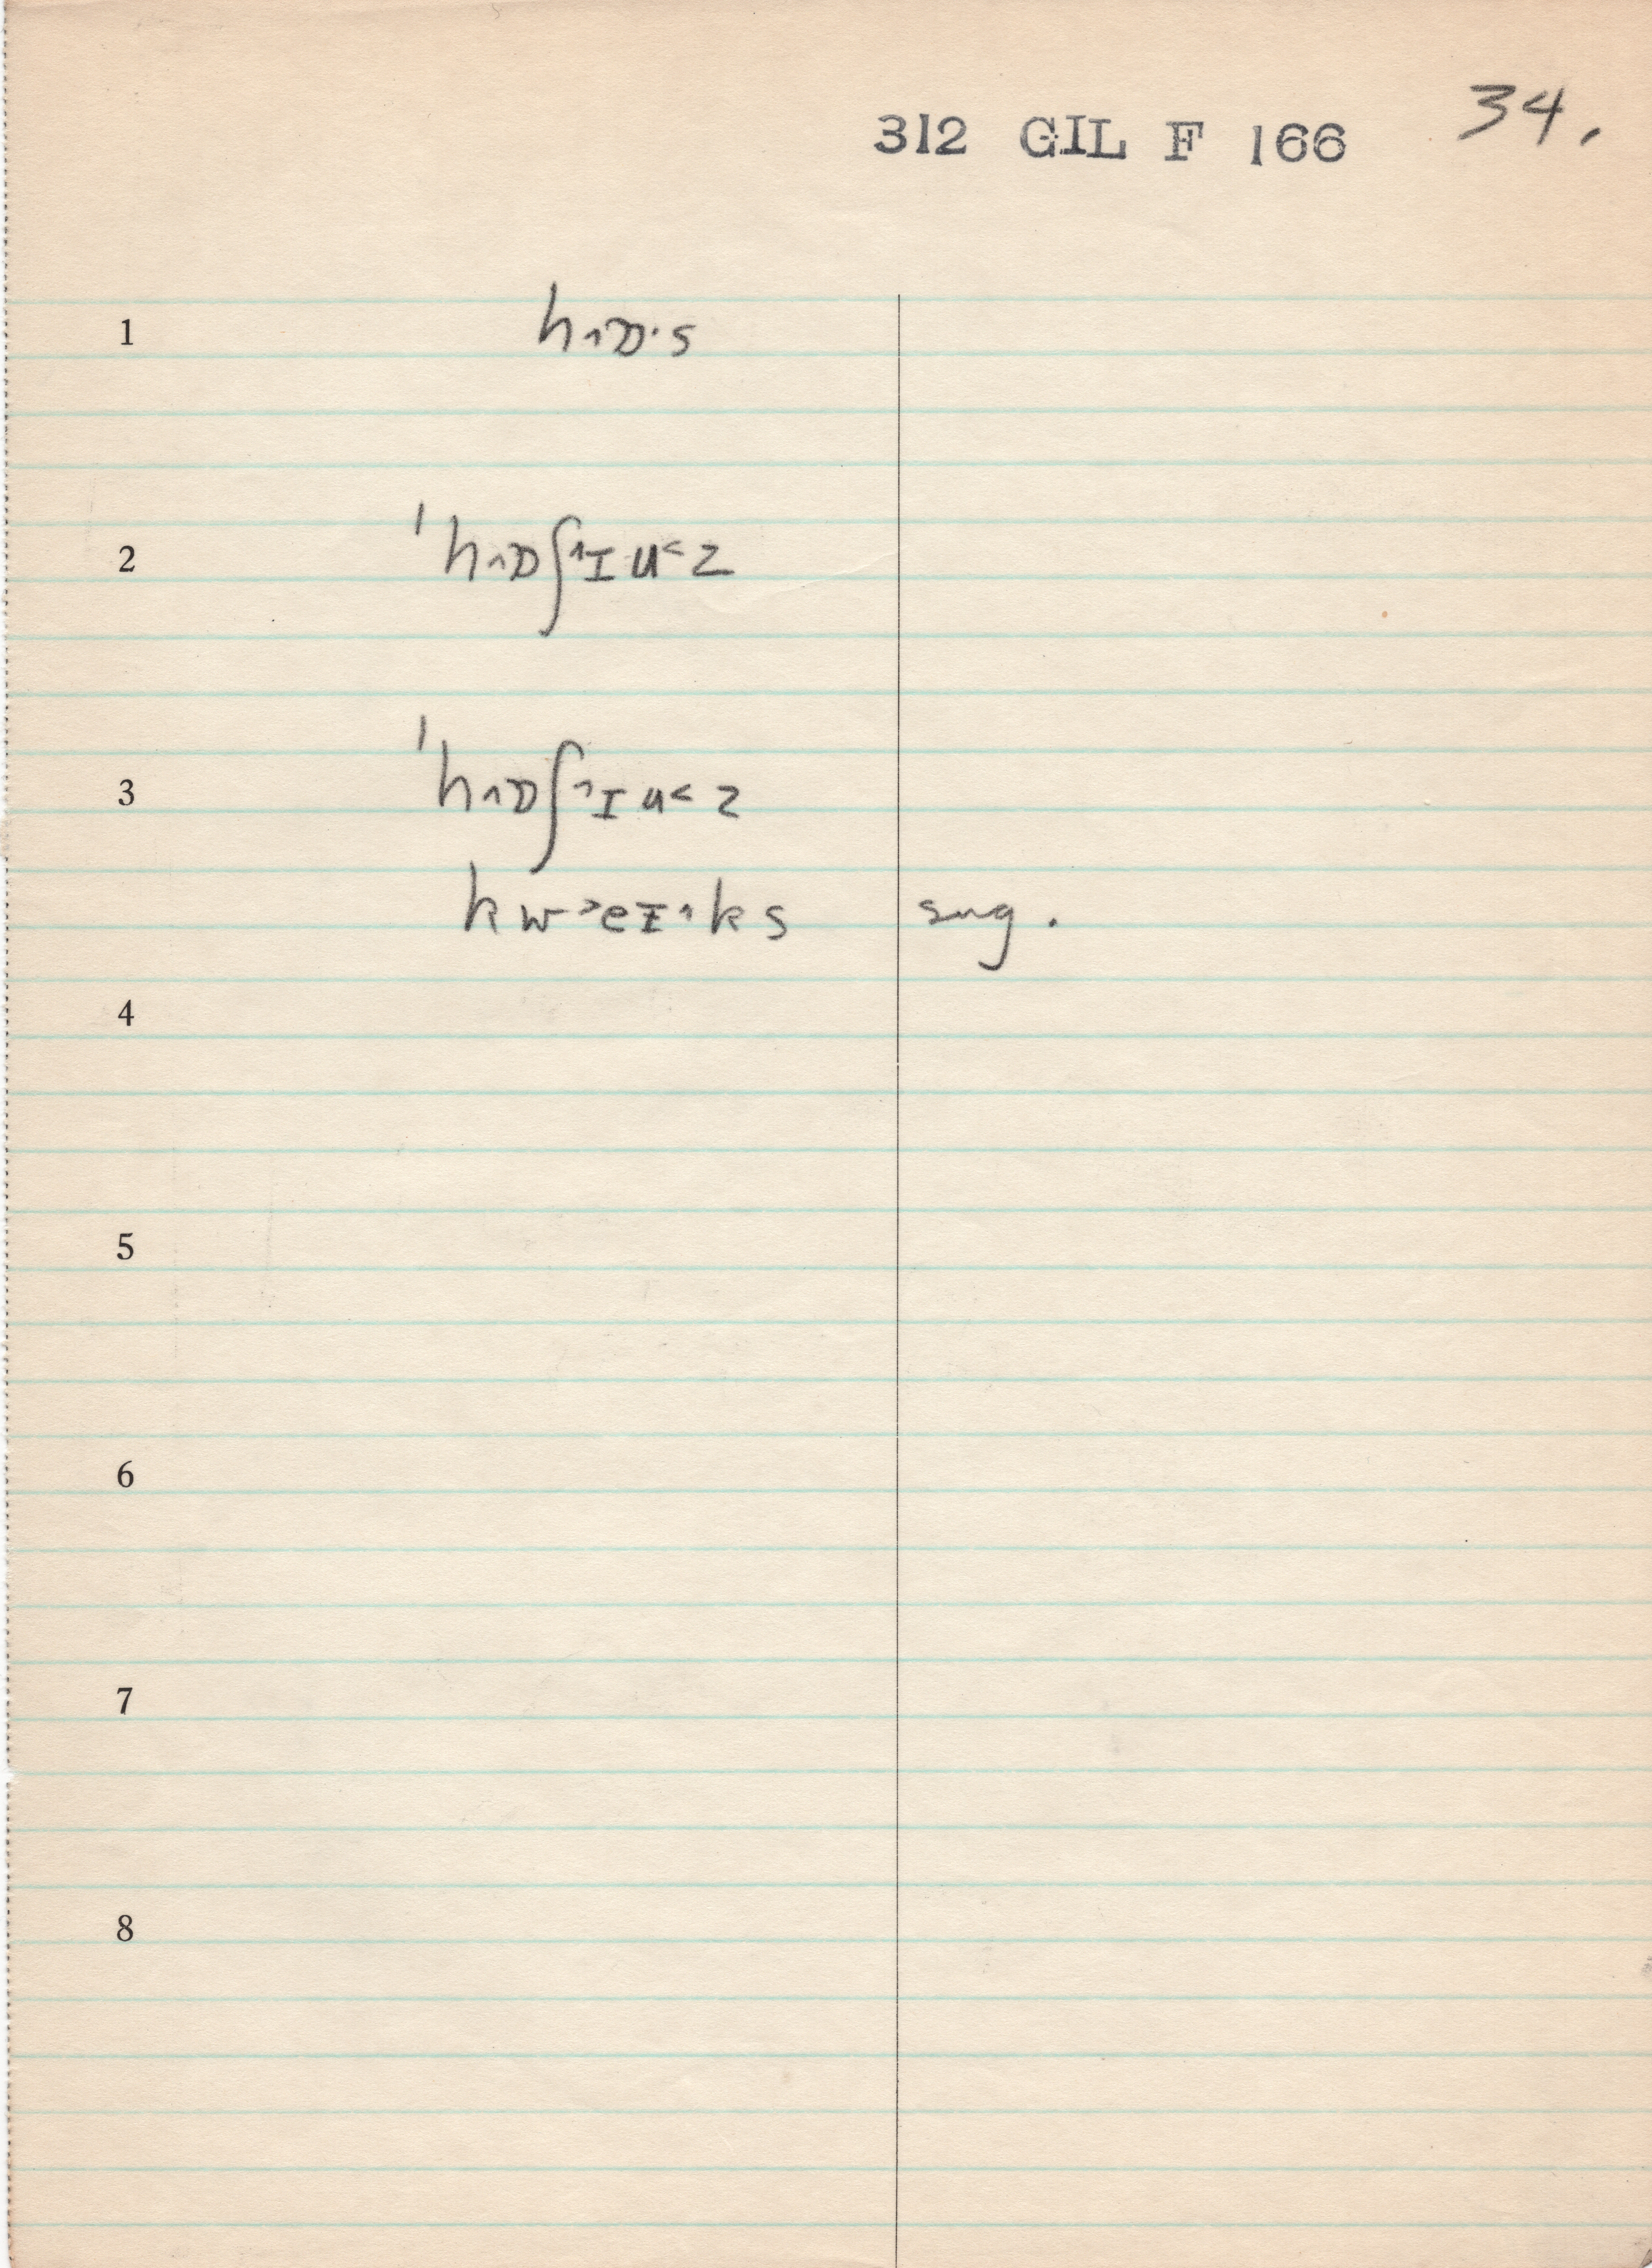 312 GIL F 166 34.
1 h˄ɒ·s
2 ˈh˄ɒʃ˄ɪu˂z
3 ˈh˄ɒʃ˄ɪu˂z
kw˃eɪ˄ks sug.
4
5
6
7
8